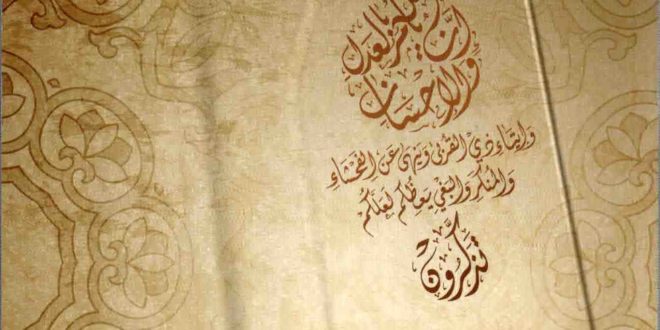 إنّ الله يأمر بالعدل
والإحسان
وإيتاءِ ذي القربى وينهى عن الفحشاءِ
والمنكر والبغي يعظكم لعلّكم
تذكّرون